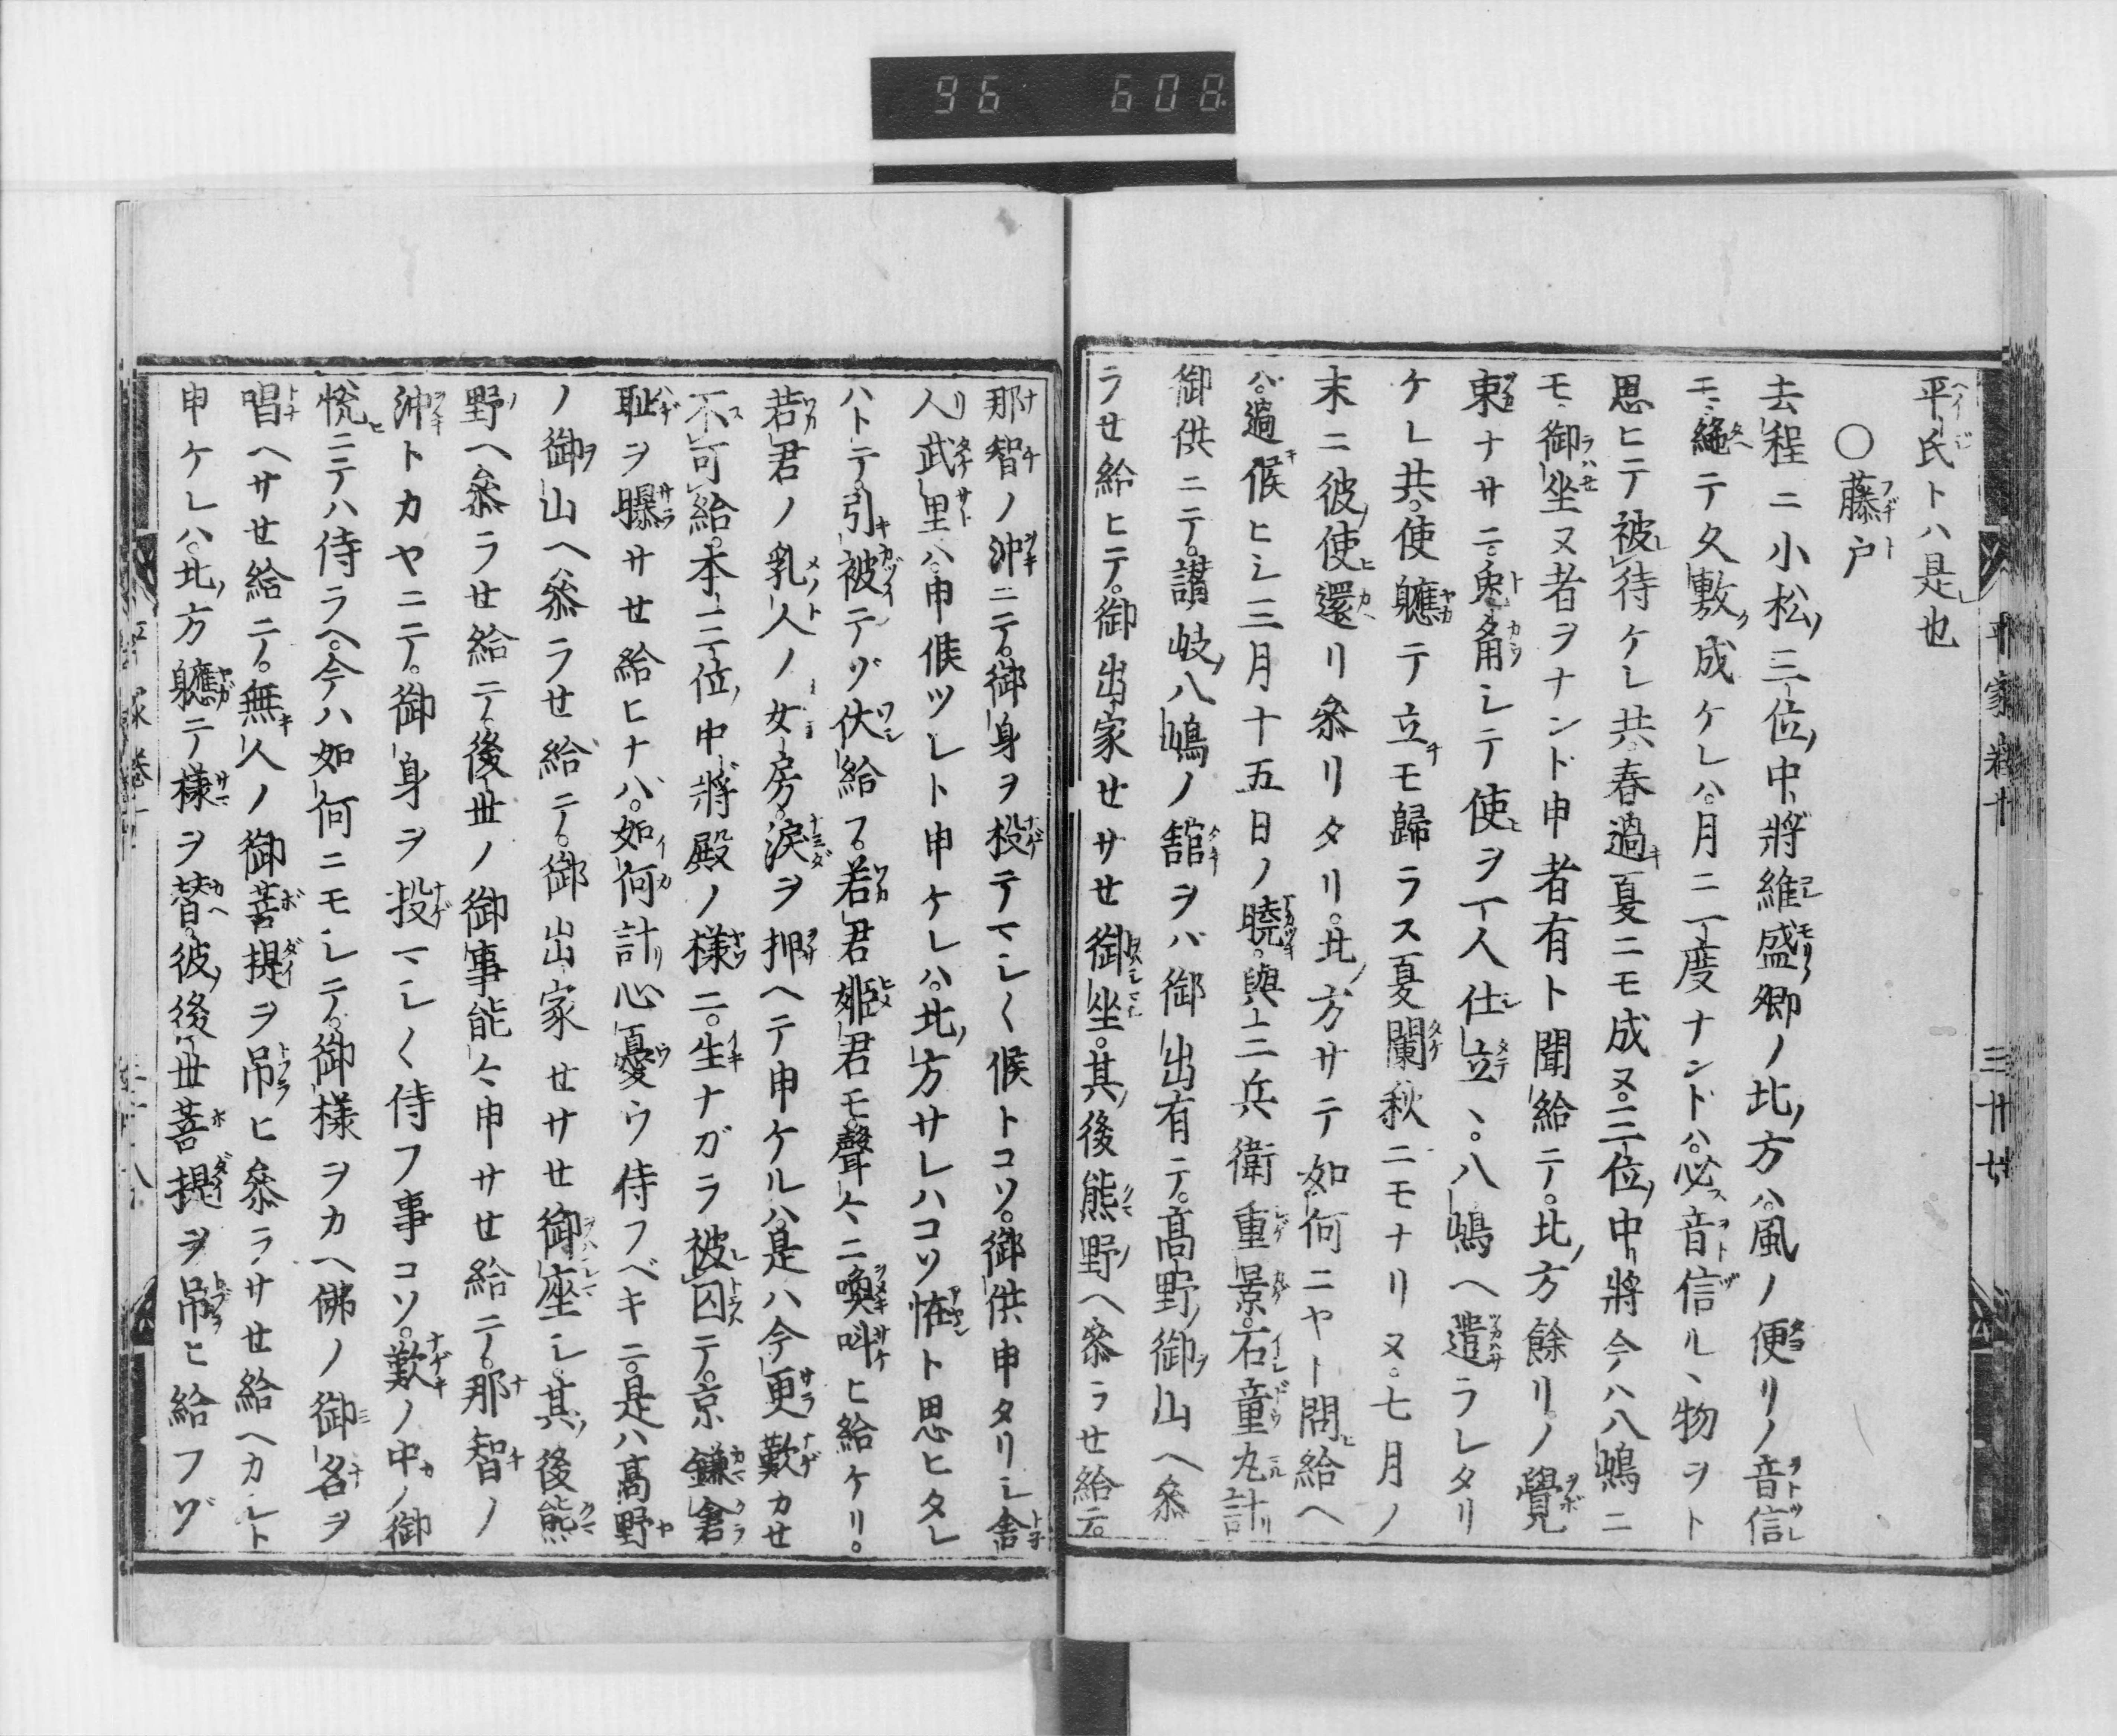 96 608
平氏トハ是也
〇藤戸
去程ニ小松三位中將維盛卿ノ北方ハ。風ノ便リノ音信
モ絶テ久敷成ケレハ。月ニ一度ナンドハ。必音信ルヽ物ヲト
思ヒテ被待ケレ共。春過夏ニモ成ヌ。三位中將今ハ八嶋ニ
モ御坐ヌ者ヲナンド申者有ト聞給テ。北方餘リノ覺
束ナサニ。兎角シテ使ヲ一人仕立ヽ。八嶋ヘ遣ラレタリ
ケレ共。使軈テ立モ歸ラス夏闌秋ニモナリヌ。七月ノ
末ニ彼使還リ參リタリ。北方サテ如何ニヤト問給ヘ
ハ。過候ヒシ三月十五日ノ曉。與三兵衛重景。石童丸計
御供ニテ。讃岐八嶋ノ舘ヲバ御出有テ。髙野御山ヘ參
ラせ給ヒテ。御出家せサせ御坐。其後熊野ヘ參ラせ給テ。
平家卷十 三十七
那智ノ沖ニテ。御身ヲ投テマシ〱候トコソ。御供申タリシ舎
人武里ハ。申候ツレト申ケレハ。北方サレハコソ恠ト思ヒタレ
ハトテ。引被テヅ伏給フ。若君姫君モ。聲々ニ喚叫ヒ給ケリ。
若君ノ乳人ノ女房。涙ヲ押ヘテ申ケルハ。是ハ今更歎カせ
不可給。本三位中將殿ノ様ニ。生ナガラ被囚テ。京鎌倉
恥ヲ曝サせ給ヒナハ。如何計心憂ウ侍フベキニ。是ハ髙野
ノ御山ヘ參ラせ給テ。御出家せサせ御座シ。其後熊
野ヘ參ラせ給テ。後世ノ御事能々申サせ給テ。那智ノ
沖トカヤニテ。御身ヲ投マシ〱侍フ事コソ。歎ノ中ノ御
恱ニテハ侍ラヘ。今ハ如何ニモシテ。御様ヲカヘ佛ノ御名ヲ
唱ヘサせ給テ。無人ノ御菩提ヲ吊ヒ參ラサせ給ヘカシト
申ケレハ。北方軈テ様ヲ替。彼後世菩提ヲ吊ヒ給フヅ